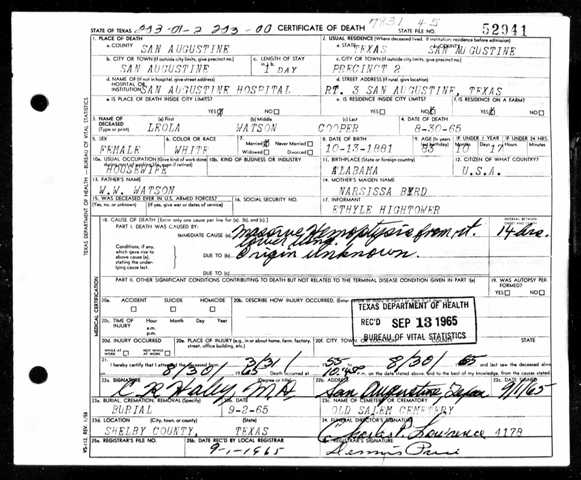 7831 45
STATE OF TEXAS CERTIFICATE OF DEATH STATE FILE NO. 52941
1. PLACE OF DEATH 2. USUAL RESIDENCE (Where deceased lived. If institution: residence before admission)
a. COUNTY SAN AUGUSTINE a. STATE TEXAS SAN AUGUSTINE
b. CITY OR TOWN (If outside city limits, give precinct no.) c. LENGTH OF STAY c. CITY OR TOWN (If outside city limits, give precinct no.)
SAN AUGUSTINE 1 DAY PRECINCT 2
d. NAME OF (If not in hospital, give street address) d. STREET ADDRESS (If rural, give location)
HOSPITAL OR INSTITUTION SAN AUGUSTINE HOSPITAL RT. 3 SAN AUGUSTINE, TEXAS
e. IS PLACE OF DEATH INSIDE CITY LIMITS? e. IS RESIDENCE INSIDE CITY LIMITS? f. IS RESIDENCE ON A FARM?
YES NO YES NO YES NO
3. NAME OF DECEASED (Type or print) (a) First (b) Middle (c) Last 4. DATE OF DEATH
LEOLA WATSON COOPER 8-30-65
5. SEX 6. COLOR OR RACE 7. Married Never Married 8. DATE OF BIRTH 9. AGE IF UNDER 1 YEAR IF UNDER 24 HRS.
FEMALE WHITE Widowed Divorced 10-13-1881 83 10 17
10a. USUAL OCCUPATION (Give kind of work done 10b. KIND OF BUSINESS OR INDUSTRY 11. BIRTHPLACE (State or foreign country) 12. CITIZEN OF WHAT COUNTRY?
HOUSEWIFE ALABAMA U.S.A.
13. FATHER'S NAME 14. MOTHER'S MAIDEN NAME
W.W. WATSON NARSISSA BYRD
15. WAS DECEASED EVER IN U.S. ARMED FORCES? 16. SOCIAL SECURITY NO. 17. INFORMANT
(Yes, no, or unknown) (If yes, give war or dates of service) ETHYLE HIGHTOWER
18. CAUSE OF DEATH [Enter only one cause per line for (a), (b), and (c).]
PART I. DEATH WAS CAUSED BY:
IMMEDIATE CAUSE (a) Massive Hemoptysis from rt. 14 hrs.
lower lung.
Conditions, if any, which gave rise to above cause (a), stating the underlying cause last. DUE TO (b) Origin unknown.
DUE TO (c)
PART II. OTHER SIGNIFICANT CONDITIONS CONTRIBUTING TO DEATH BUT NOT RELATED TO THE TERMINAL DISEASE CONDITION GIVEN IN PART I(a) 19. WAS AUTOPSY PERFORMED?
YES NO
20a. ACCIDENT SUICIDE HOMICIDE 20b. DESCRIBE HOW INJURY OCCURRED.
TEXAS DEPARTMENT OF HEALTH
REC'D SEP 13 1965
BUREAU OF VITAL STATISTICS
20c. TIME OF INJURY Hour Month Day Year
a.m.
p.m.
20d. INJURY OCCURRED 20e. PLACE OF INJURY (e.g., in or about home, farm, factory, street, office building, etc.) 20f. CITY, TOWN STATE
WHILE AT WORK NOT WHILE AT WORK
21. I hereby certify that I attended 3/31 55 8/30 65
8/30 65 Death occurred at 10:45 m. on the date stated above, and to the best of my knowledge, from the causes stated.
22a. SIGNATURE (Degree or title) 22b. ADDRESS 22c. DATE SIGNED
C R Haley M.D. San Augustine, Texas 9/1/65
23a. BURIAL, CREMATION, REMOVAL (Specify) 23b. DATE 23c. NAME OF CEMETERY OR CREMATORY
BURIAL 9-2-65 OLD SALEM CEMETERY
23d. LOCATION (City, town, or county) (State) 24. FUNERAL DIRECTOR'S SIGNATURE
SHELBY COUNTY, TEXAS 4178
25a. REGISTRAR'S FILE NO. 25b. DATE REC'D BY LOCAL REGISTRAR 25c. REGISTRAR'S SIGNATURE
9-1-1965
TEXAS DEPARTMENT OF HEALTH - BUREAU OF VITAL STATISTICS
MEDICAL CERTIFICATION
VS-112 REV. 1/58